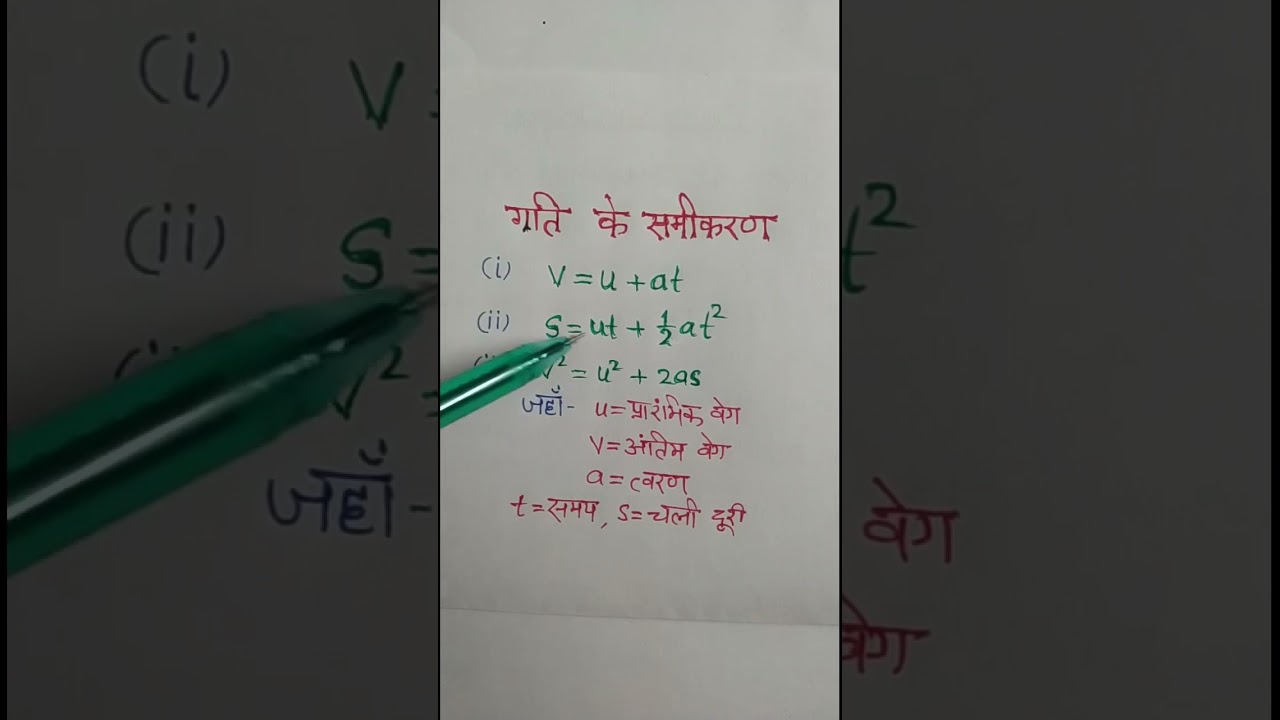 गति के समीकरण
(i) V = u + at
(ii) S = ut + 1/2 at²
V² = u² + 2as
जहाँ - u = प्रारंभिक वेग
V = अंतिम वेग
a = त्वरण
t = समय, S = चली दूरी